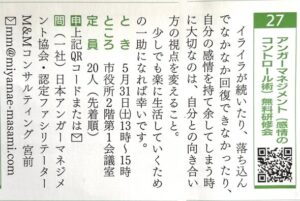 27
アンガーマネジメント「感情の
コントロール術」無料研修会
イライラが続いたり、落ち込ん
でなかなか回復できなかったり、
自分の感情を持て余してしまう時
に大切なのは、自分との向き合い
方の視点を変えること。
少しでも楽に生活していくため
の一助になれば幸いです。
とき 5月31日㈯13時〜15時
ところ 市役所2階第1会議室
定員 20人（先着順）
申上記QRコードまたは✉
問（一社）日本アンガーマネジメ
ント協会・認定ファシリテーター
M&Mコンサルティング 宮前
✉mm@miyamae-masami.com